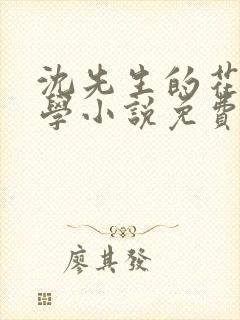 沈先生的花
學小說免費
廖其發